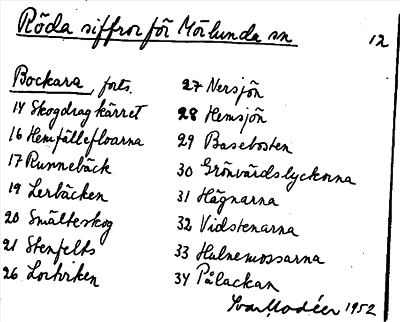 Röda siffror för Mörlunda sn
12
Bockara, forts.
14 Skogdragkärret
16 Hemfällefloarna
17 Runnebäck
19 Lerbäcken
20 Smälteskog
21 Stenfelts
26 Lortviken
27 Nersjön
28 Hemsjön
29 Basebosten
30 Grönvårdslyckorna
31 Hägnarna
32 Vidstenarna
33 Hulnemossarna
34 Pålackan
Ivar Modéer 1952